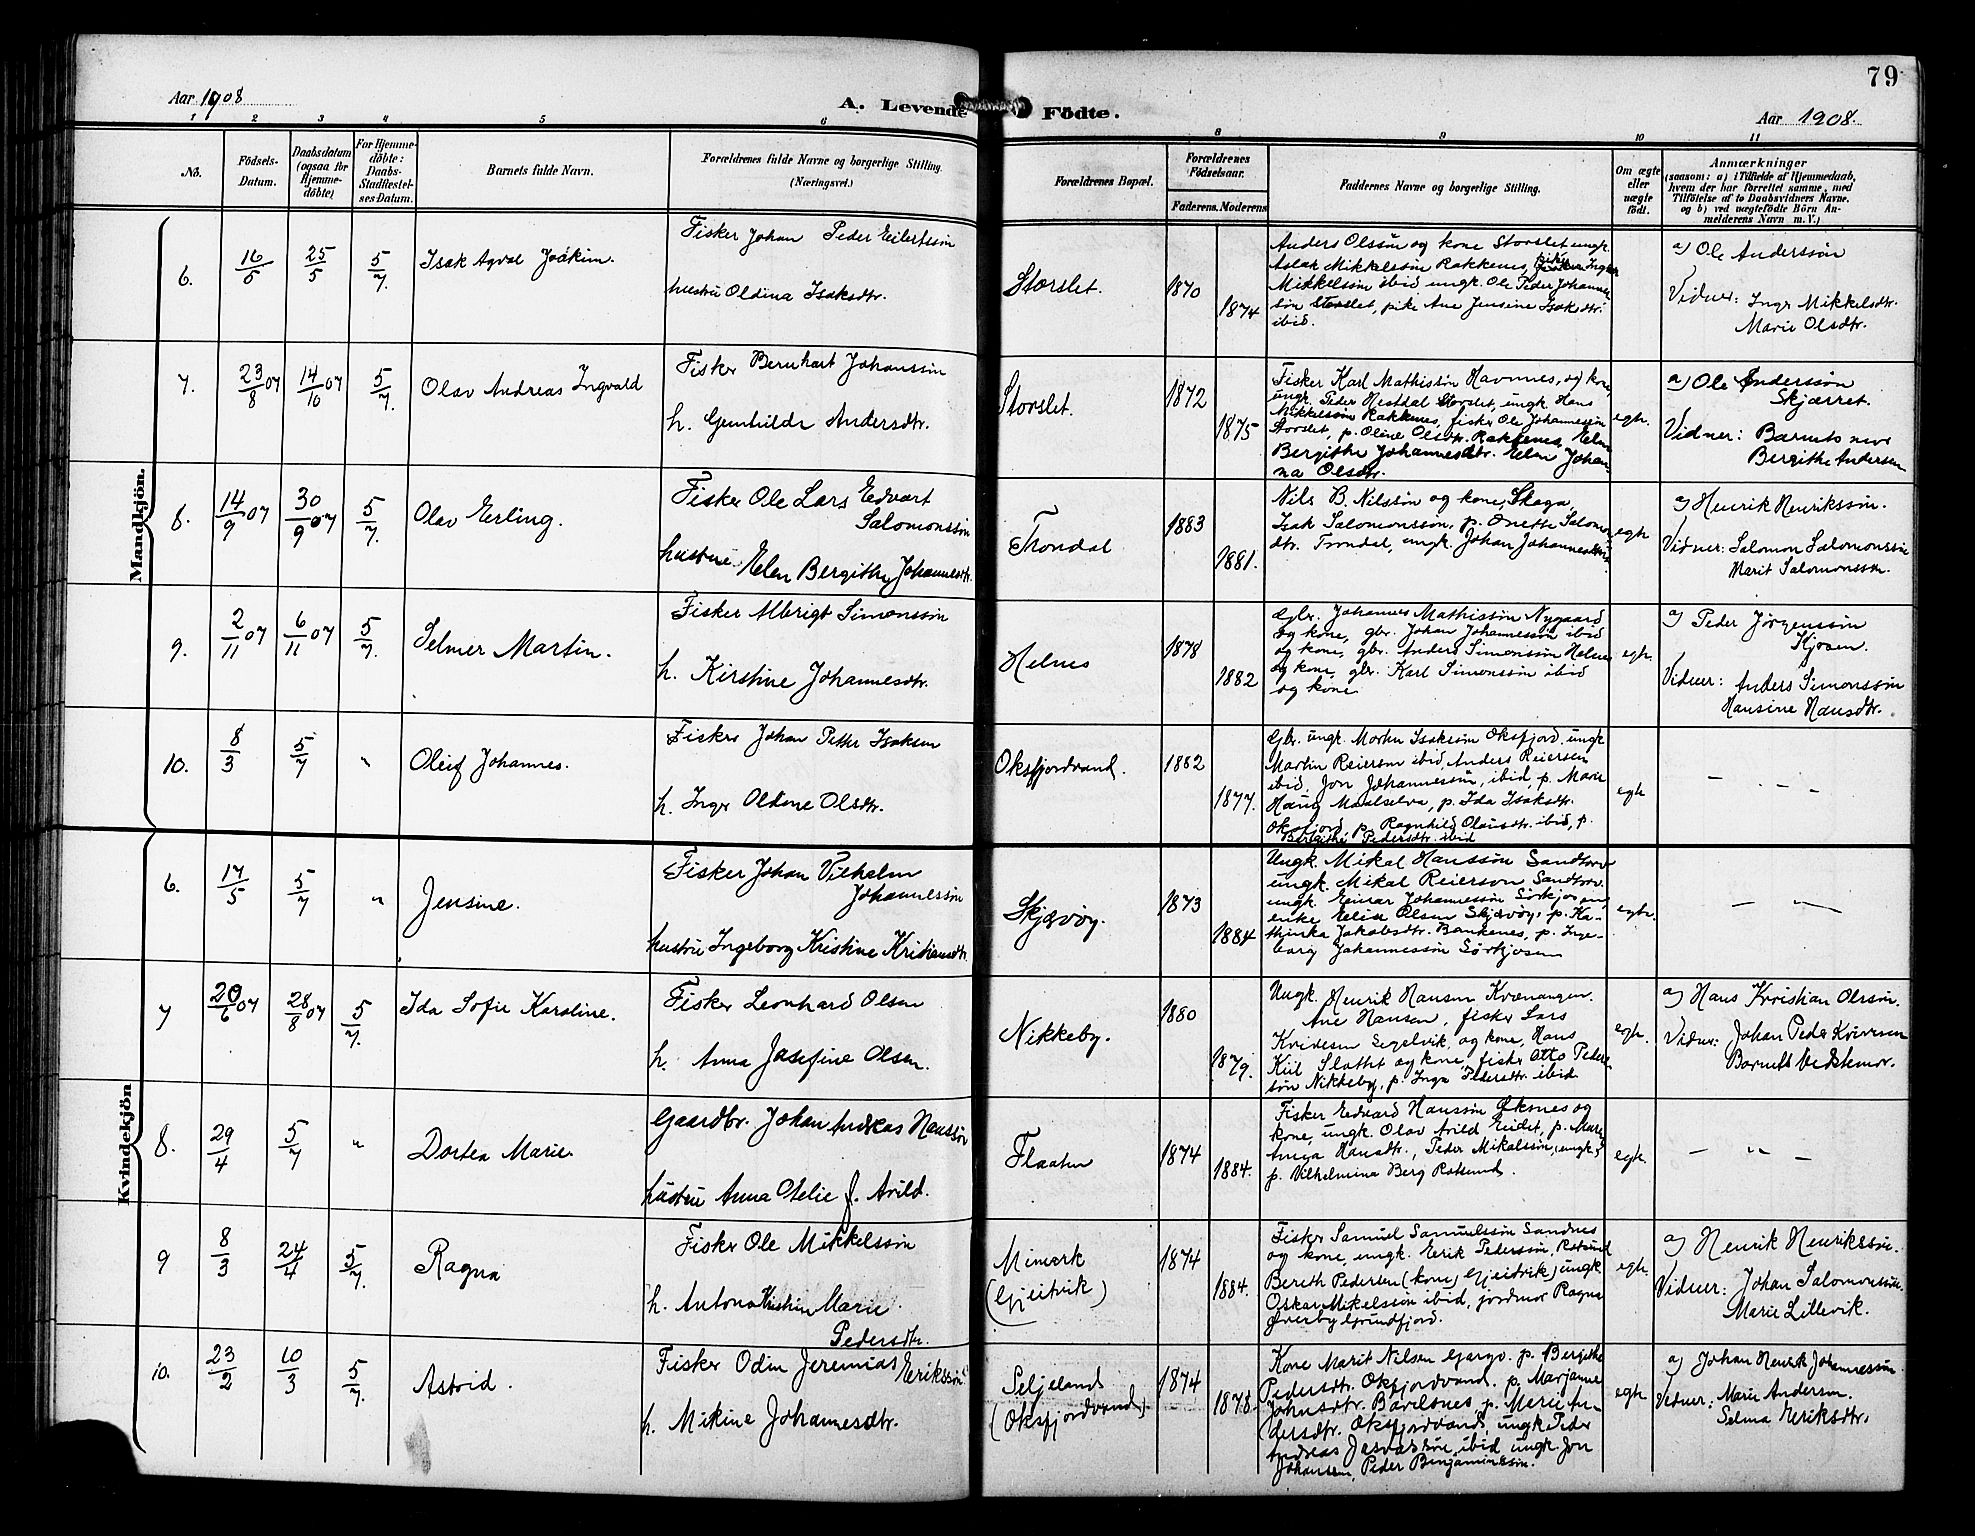 79
Aar 1908
A. Levende Födte.
Aar 1908.
1 2 3 4 5 6 8 9 10 11
No.
Födsels-Datum.
Daabsdatum (ogsaa for Hjemme-döbte)
For Hjemme-döbte: Daabs-Stadfæstel-ses Datum.
Barnets fulde Navn.
Forældrenes fulde Navne og borgerlige Stilling.
(Næringsvei.)
Forældrenes Bopæl.
Forældrenes Födselsaar.
Faderens. Moderens.
Faddernes Navne og borgerlige Stilling.
Om ægte eller uægte født.
Anmærkninger
(saasom: a) i Tilfælde af Hjemmedaab,
hvem der har forrettet samme, med
Tilföielse af to Daabsvidners Navne.
og b) ved uægtefödte Börn An-
melderens Navn m. V.)
Mandkjön.
6. 16/5 25/5 5/7. Isak Agval Joakim.
Fisker Johan Peder Eilertssön
hustru Oldina Isaksdtr.
Storslet. 1870 1874
Anders Olssön og kone Storslet ungk.
Aslak Mikkelssön Rakkenes, pike Inger
Mikkelssön ibid ungk. Ole Peder Johannes
sön Storslet, pike Ane Jensine Isaksdtr.
ibid.
a) Ole Anderssön
Vidner: Inger Mikkelsdtr.
Marie Olsdtr.
7. 23/8 07 14/10 07 5/7. Olav Andreas Ingvald
Fisker Bernhart Johanssön
h. Gunhilde Andersdtr.
Storslet. 1872 1875
Fisker Karl Mathissön Havnnes, og kone,
ungk. Peder Hestdal Storslet, ungk. Hans
Mikkelssön Rakkenes, fisker Ole Johannessön
Storslet, p. Oline Olsdtr. Rakkenes, Elen
Bergithe Johannesdtr. Elen Johan-
na Olsdtr.
egte.
a) Ole Anderssön
Skjærret.
Vidner: Barnets mor
Bergithe Andersen
8. 14/9 07 30/9 07 5/7. Olav Erling.
Fisker Ole Lars Edvart
Salomonssön
hustru Elen Bergithe Johannesdtr.
Trondal 1883 1881.
Nils B. Nilssön og kone, Skaga,
Isak Salomonssön, p. Anette Salomo
dtr. Trondal, ungk. Johan Johannessön
egte
a) Henrik Henrikssön.
Vidner: Salomon Salomonssön
Marit Salomonssön.
9. 2/11 07 6/11 07 5/7. Selmer Martin.
Fisker Albrigt Simonssön
h. Kirstine Johannesdtr.
Helnes 1878 1882
Gbr. Johannes Mathissön Nygaard
og kone, gbr. Johan Johannessön ibid
og kone, gbr. Anders Simonssön Helnes
og kone, gbr. Karl Simonssön ibid
og kone
egte.
a) Peder Jörgenssön
Kjosen.
Vidner: Anders Simonssön
Hansine Hansdtr.
10. 8/3 5/7 " Oleif Johannes.
Fisker Johan Petter Isaksen
h. Inger Oldine Olsdtr.
Oksfjordvand. 1882 1877.
Gbr. ungk. Morten Isaksön Oksfjord. ungk
Martin Reiersen ibid, Anders Reiersen
ibid, Jon Johannessön, ibid p. Marie
Haug Maalselva, p. Ida Isaksdtr.
Oksfjord, p. Ragnhild Olausdtr. ibid, p.
Bergithe Pedersdtr. ibid
egte
— " —
Kvindekjön
6. 17/5 5/7 " Jensine.
Fisker Johan Vilhelm
Johannessön
hustru Ingeborg Kristine Kristiansdtr.
Skjærvöy. 1873 1884
Ungk. Mikal Hanssön Sandtorv
ungk. Mikal Reierson Sandtorv.
ungk. Einar Johannessön Sörkjosen,
enke Elise Olsen Skjærvöy, p. Ka-
thinka Jakobsdtr. Bankenes, p. Inge-
borg Johannessön Sörkjosen
egte.
— " —
7 20/6 07 28/8 07 5/7. Ida Sofie Karoline.
Fisker Leonhard Olsen
h. Anna Josefine Olsen.
Nikkeby. 1880 1879.
Ungk. Henrik Hansen Kvænangen.
Ane Hansen, fisker Lars
Kridesen Segelvik, og kone, Hans
Kiil Slottet og kone, fisker Otto Peder-
sön Nikkeby, p. Inga Pedersdtr. ibid
egte.
a) Hans Kristian Olssön.
Vidner: Johan Peder Iversen
Barnets Bedstemor.
8. 29/4 5/7 " Dortea Marie
Gaardbr. Johan Andreas Hanssön
hustru Anna Otelie f. Arild.
Flaaten 1874 1884.
Fisker Edvard Hanssön Oksnes og
kone, ungk. Olav Arild Eidet, p. Marie
Anna Hansdtr., Peder Mikalssön, ungk.,
p. Vilhelmina Berg Rotsund.
egte.
— " —
9 8/3 24/4 5/7. Ragna
Fisker Ole Mikkelssön
h. Antona Kristine Marie
Pedersdtr.
Mimerk
(Gjeitvik) 1874 1884.
Fisker Samuel Samuelssön Sandnes
og kone, ungk. Erik Pederssön, Rotsund
Bereth Pedersen (kone) Gjeitvik) ungk
Oskar Mikelssön ibid, jordmor Ragna
Överby Grundfjord.
egte.
a) Henrik Henrikssön.
Vidner: Johan Salomonssön.
Marie Lillevik.
10. 23/2 10/3 5/7. Astrid.
Fisker Odin Jeremias Erikssön
h. Mikine Johannesdtr.
Seljeland
(Oksfjordvand). 1874 1878.
Kone Marit Nilsen Gargo. p. Bergithe
Pedersdtr. Oksfjordvand. p. Marjanne
Johnsdtr. Bavilsnes p. Merie An-
dersdtr. Oksfjordvand, ungk Peder
Andreas Josvassön, ibid ungk. Jon
Johansen, Peder Benjaminssön.
egte
a) Johan Henrik Johannessön
Vidner: Marie Andersen.
Selma Eriksdtr.